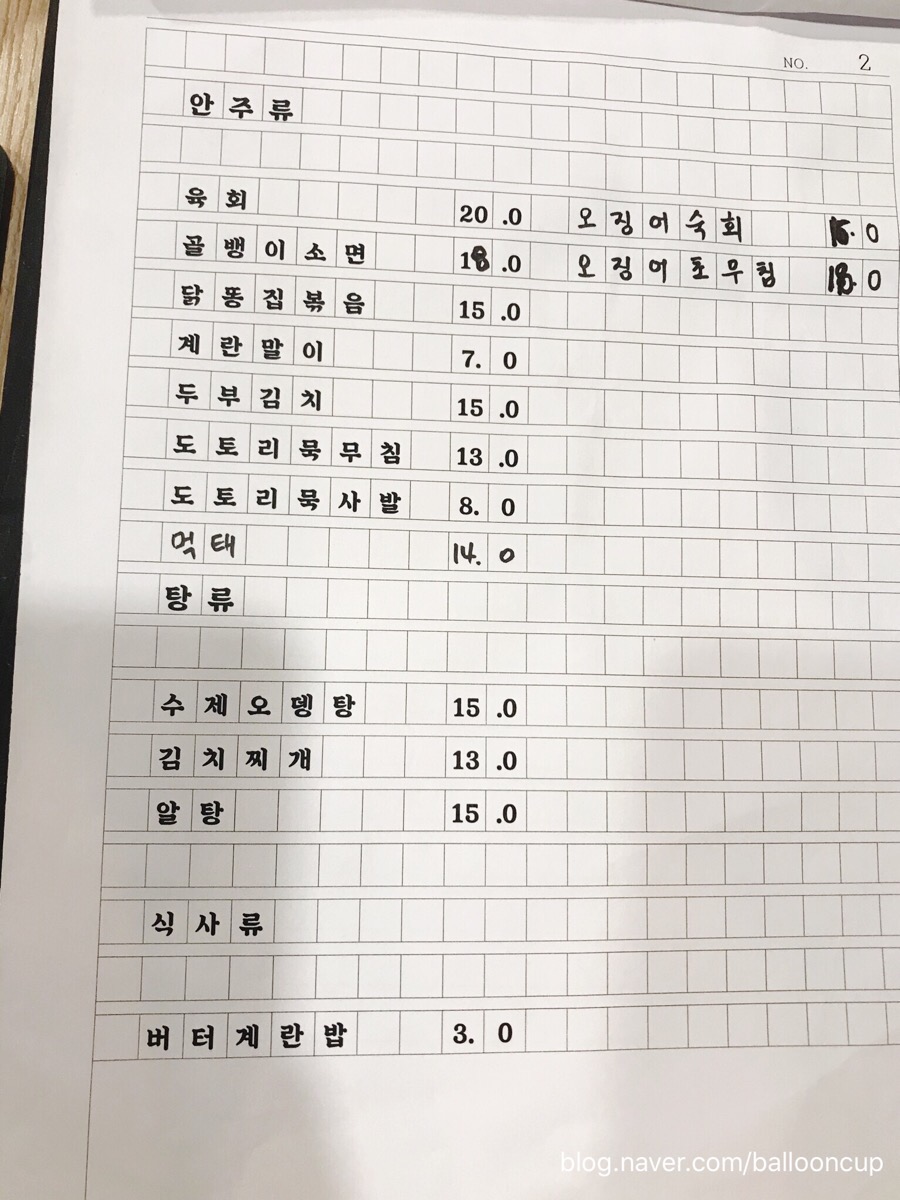 NO. 2
안주류
육회 20.0 오징어숙회 15.0
골뱅이소면 18.0 오징어초무침 18.0
닭똥집볶음 15.0
계란말이 7.0
두부김치 15.0
도토리묵무침 13.0
도토리묵사발 8.0
먹태 14.0
탕류
수제오뎅탕 15.0
김치찌개 13.0
알탕 15.0
식사류
버터계란밥 3.0
blog.naver.com/ballooncup